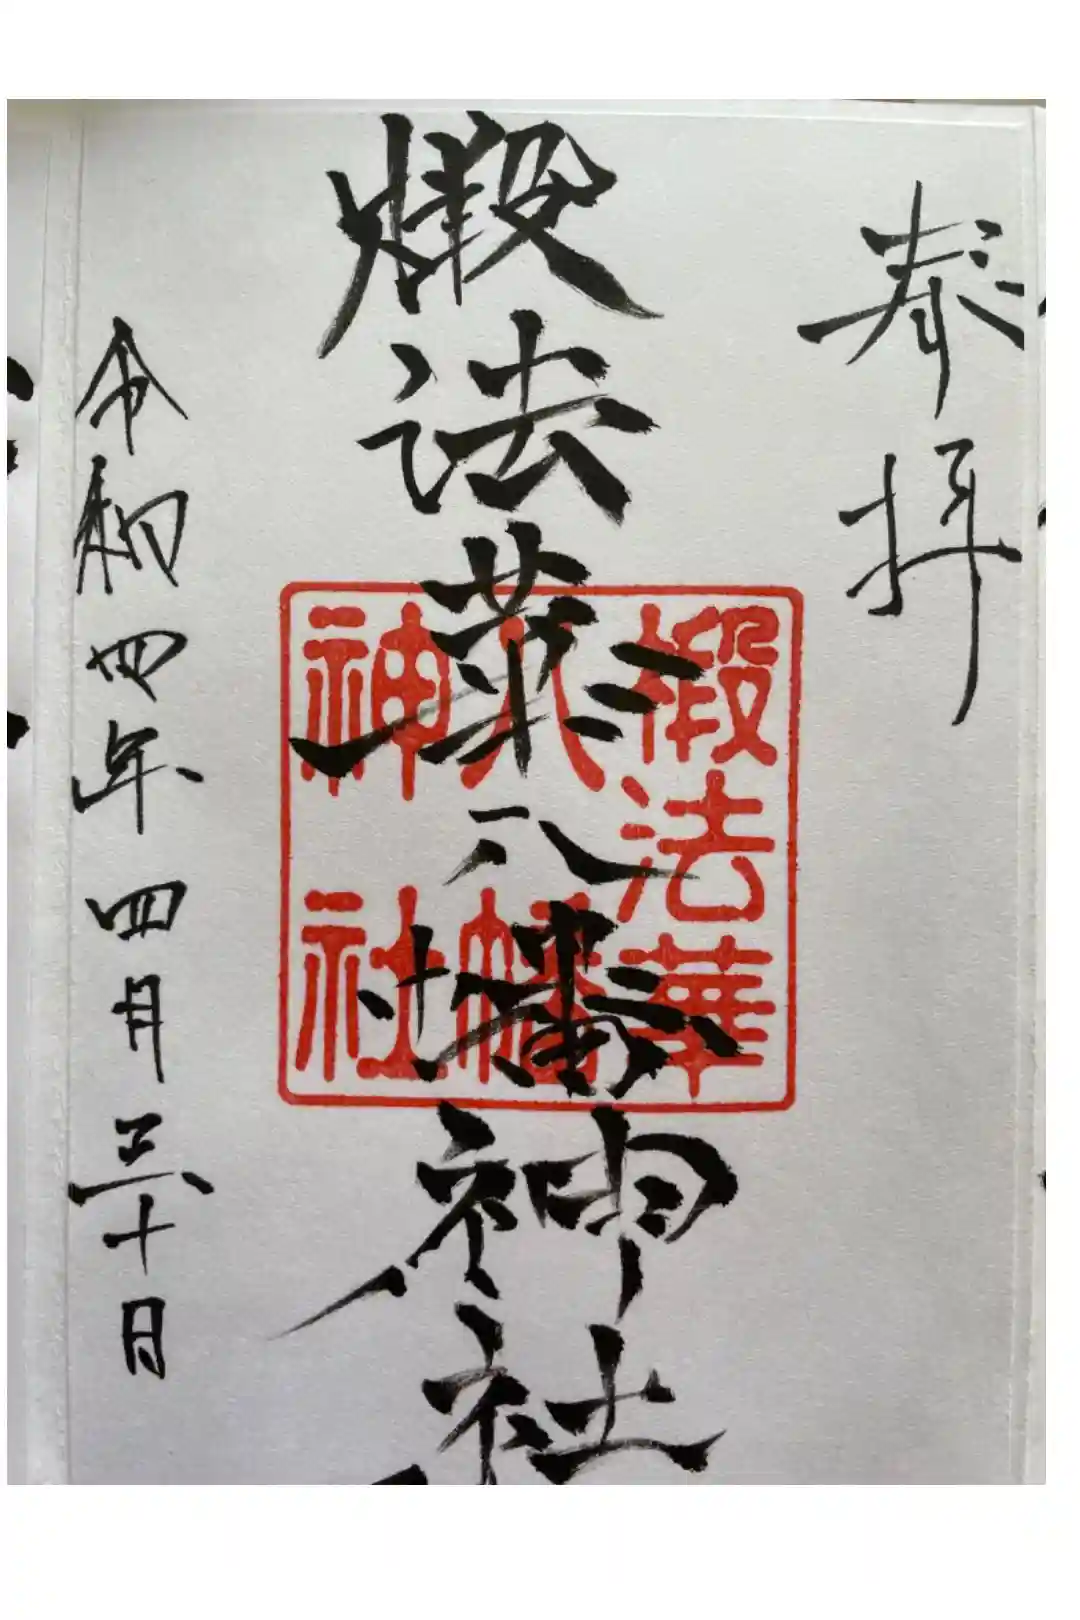 奉拝
椴法華八幡神社
椴法華
八幡
神社
令和四年四月三十日